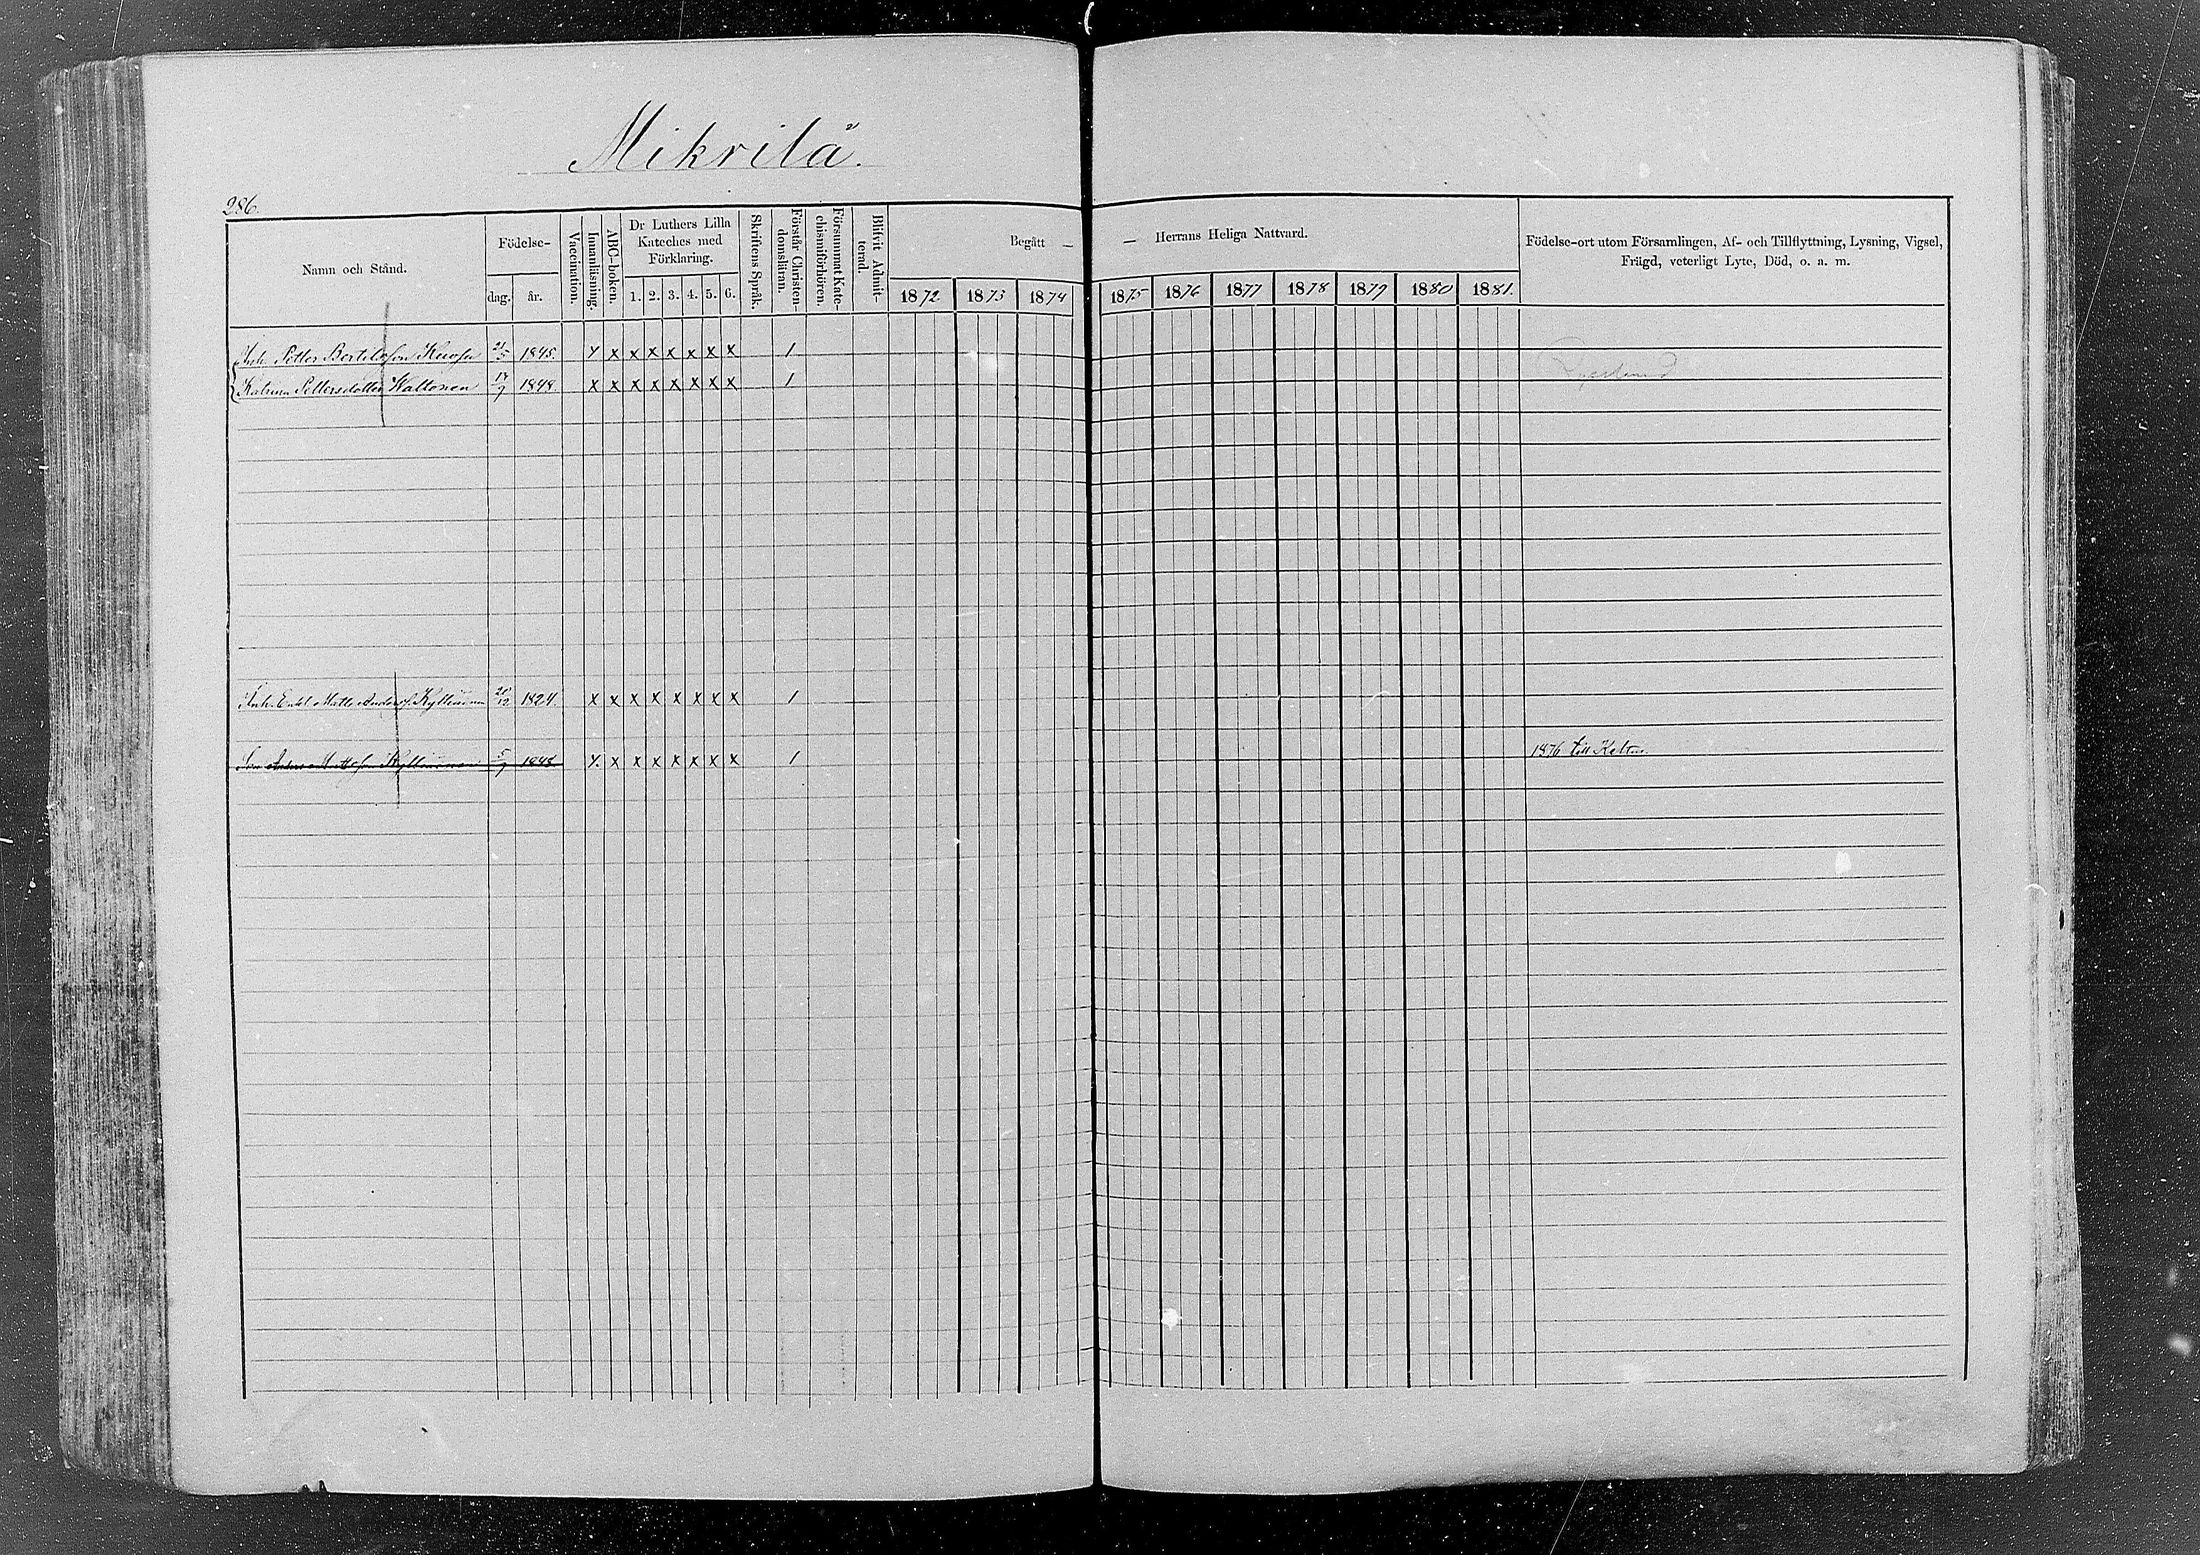 Mikrilä.
286.
Namn och Stånd.
Födelse-
dag. år.
Vaccination.
Innanläsning.
ABC-boken.
Dr Luthers Lilla
Kateches med
Förklaring.
1. 2. 3. 4. 5. 6.
Skriftens Språk.
Förstår Christen-
domsläran.
Försummat Kate-
chismiförhören.
Blifvit Admit-
terad.
Begått — — Herrans Heliga Nattvard.
1872 1873 1874 1875 1876 1877 1878 1879 1880 1881.
Födelse-ort utom Församlingen, Af- och Tillflyttning, Lysning, Vigsel,
Frägd, veterligt Lyte, Död, o. a. m.
Inh. Petter Bertilsson 21/5 1845. x x x x x x x x 1
Katrina Pettersdotter Kattonen 17/9 1848. x x x x x x x x 1
Inh. Enkl. Matts Anderss. 1824. x x x x x x x x 1
Son Anders Mattsson 5/9 1848 x x x x x x x x 1 1876 till